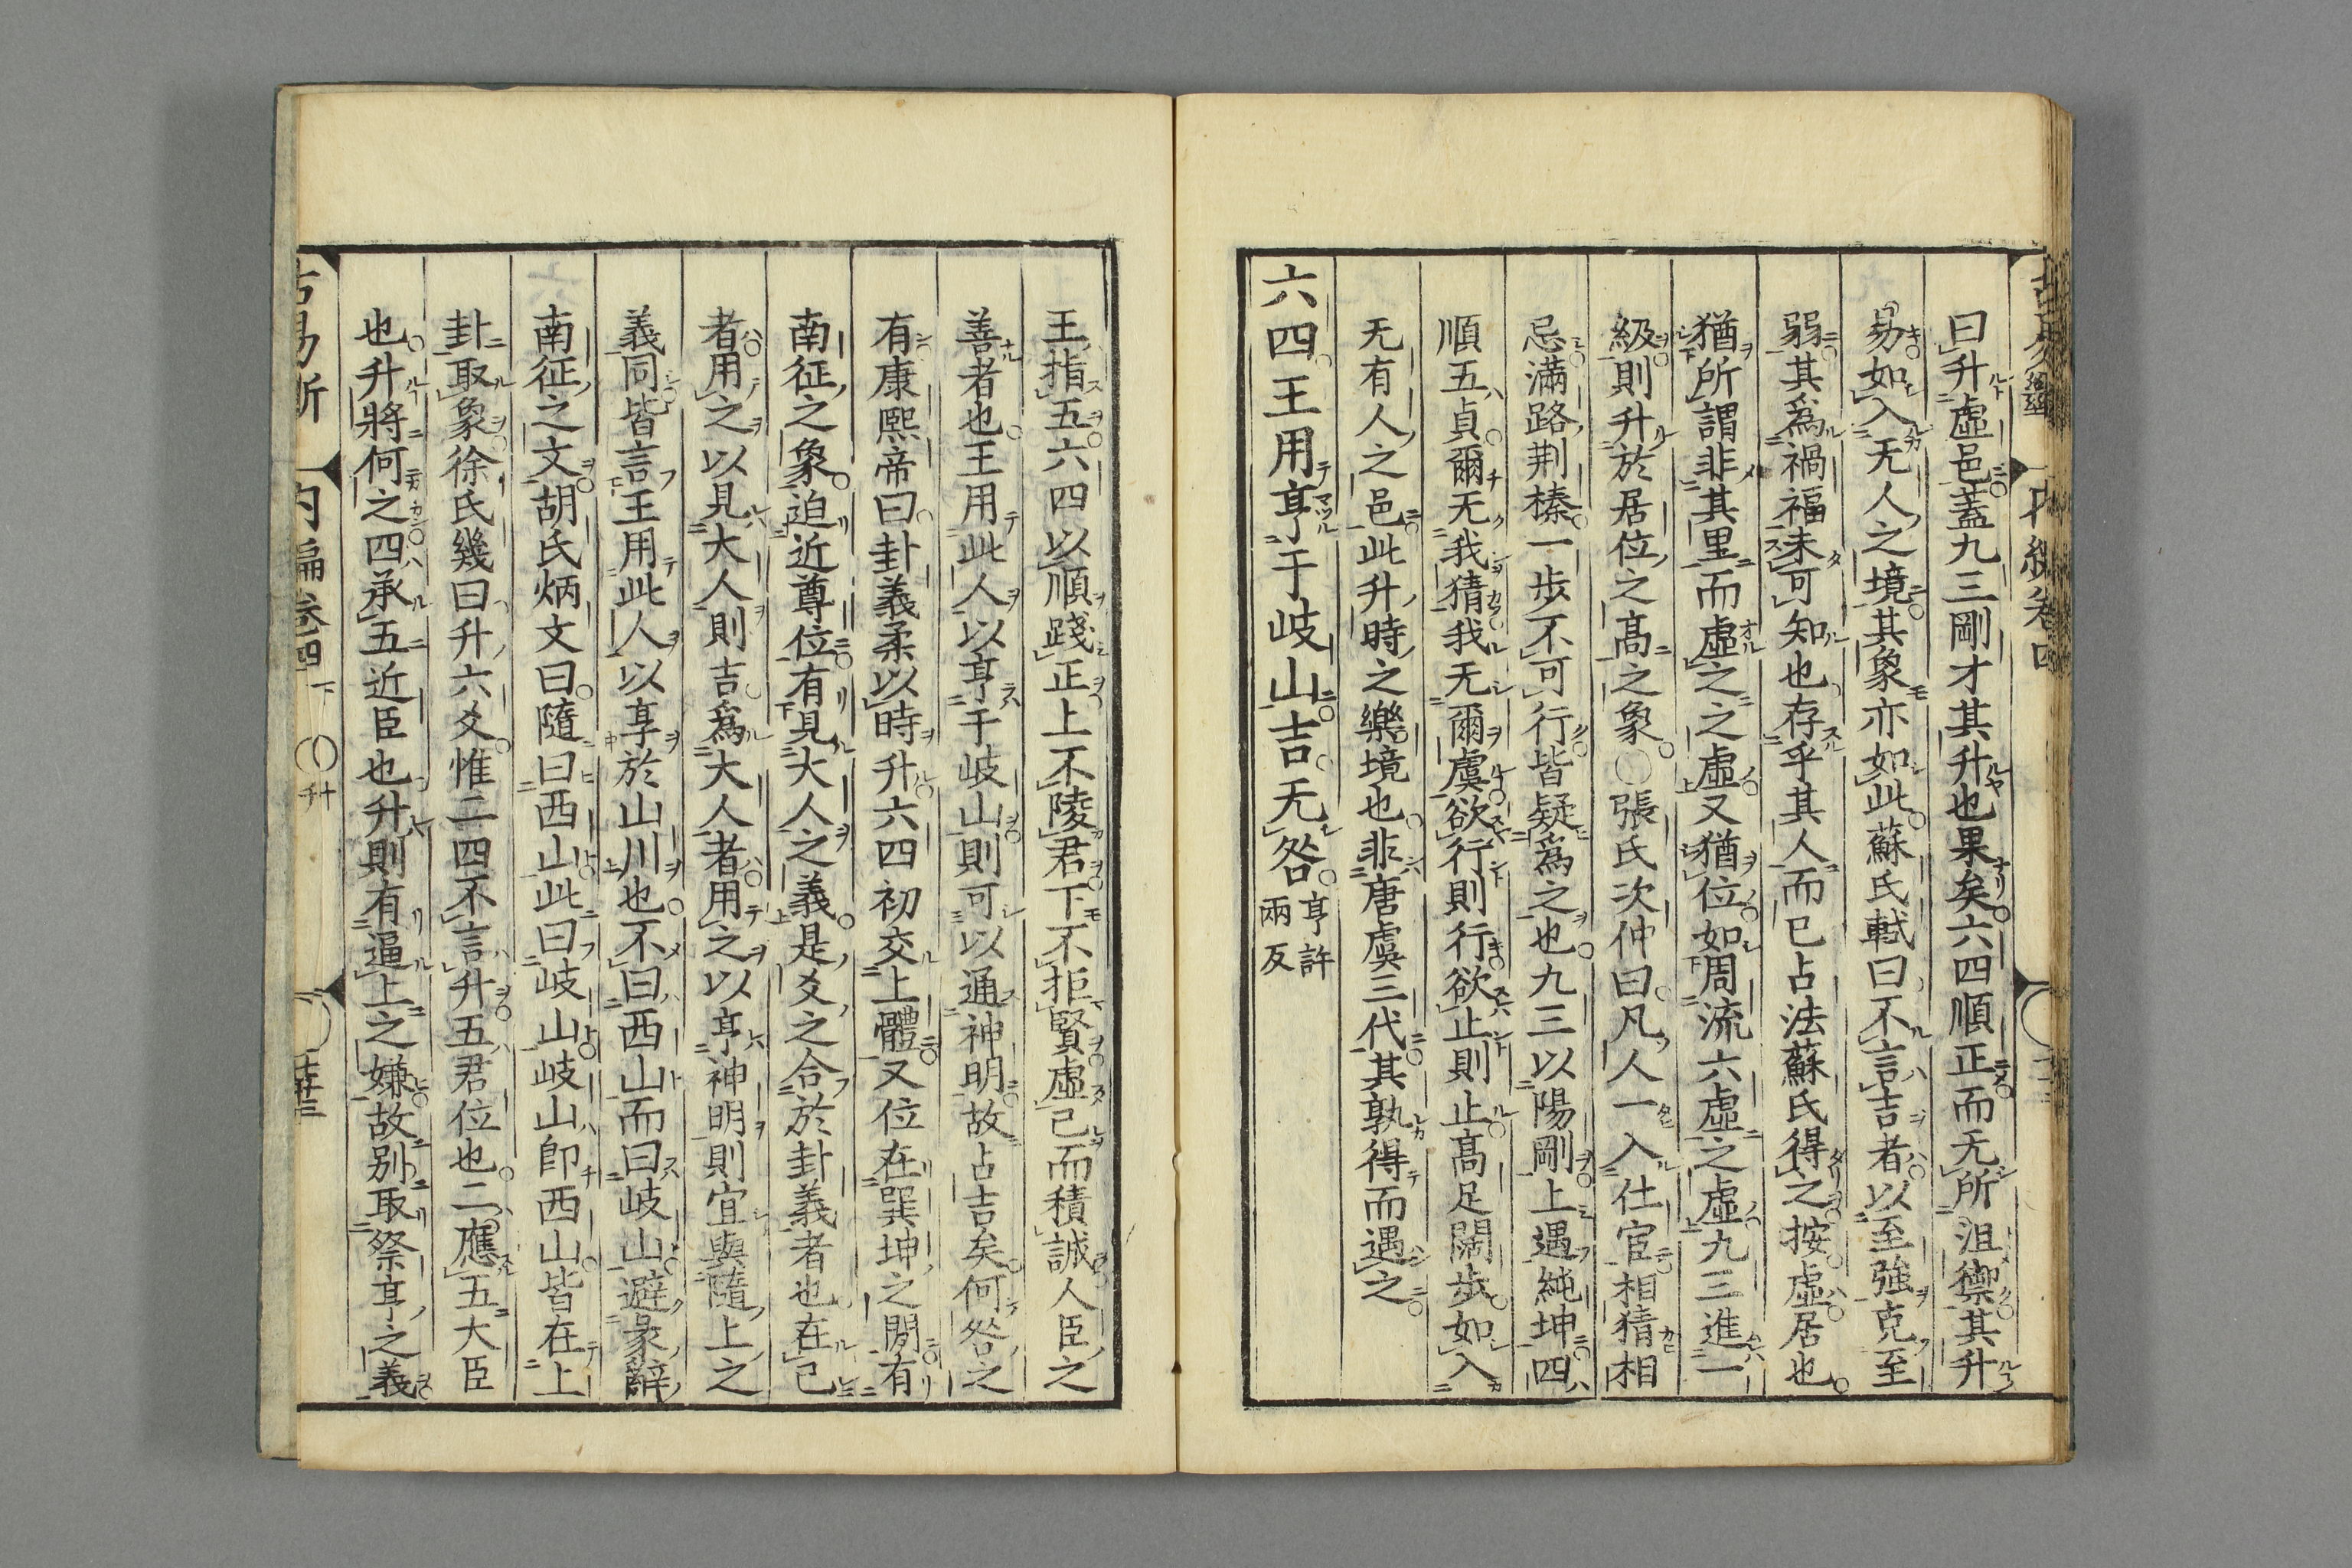 曰升虛邑蓋九三剛才其升也果矣六四順正而无所沮禦其升
易如入无人之境其象亦如此蘇氏軾曰不言吉者以至強克至
弱其爲禍福未可知也存乎其人而已占法蘇氏得之按虛居也
猶所謂非其里而虛之之虛又猶位如周流六虛之虛九三進一
級則升於居位之高之象〇張氏次仲曰凡人一入仕宦相猜相
忌滿路荆榛一歩不可行皆疑爲之也九三以陽剛上遇純坤四
順五貞爾无我猜我无爾虞欲行則行欲止則止高足闊歩如入
无有人之邑此升時之樂境也非唐虞三代其孰得而遇之
六四王用亨于岐山吉无咎亨許兩反
王指五六四以順踐正上不陵君下不拒賢虛己而積誠人臣之
善者也王用此人以亨于岐山則可以通神明故占吉矣何咎之
有康熙帝曰卦義柔以時升六四初交上體又位在巽坤之間有
南征之象迫近尊位有見大人之義是爻之合於卦義者也在己
者用之以見大人則吉爲大人者用之以亨神明則宜與隨上之
義同皆言王用此人以享於山川也不曰西山而曰岐山避彖辭
南征之文胡氏炳文曰隨曰西山此曰岐山岐山卽西山皆在上
卦取象徐氏幾曰升六爻惟二四不言升五君位也二應五大臣
也升將何之四承五近臣也升則有逼上之嫌故别取祭亨之義
古易斷 内編卷四 下 〇升